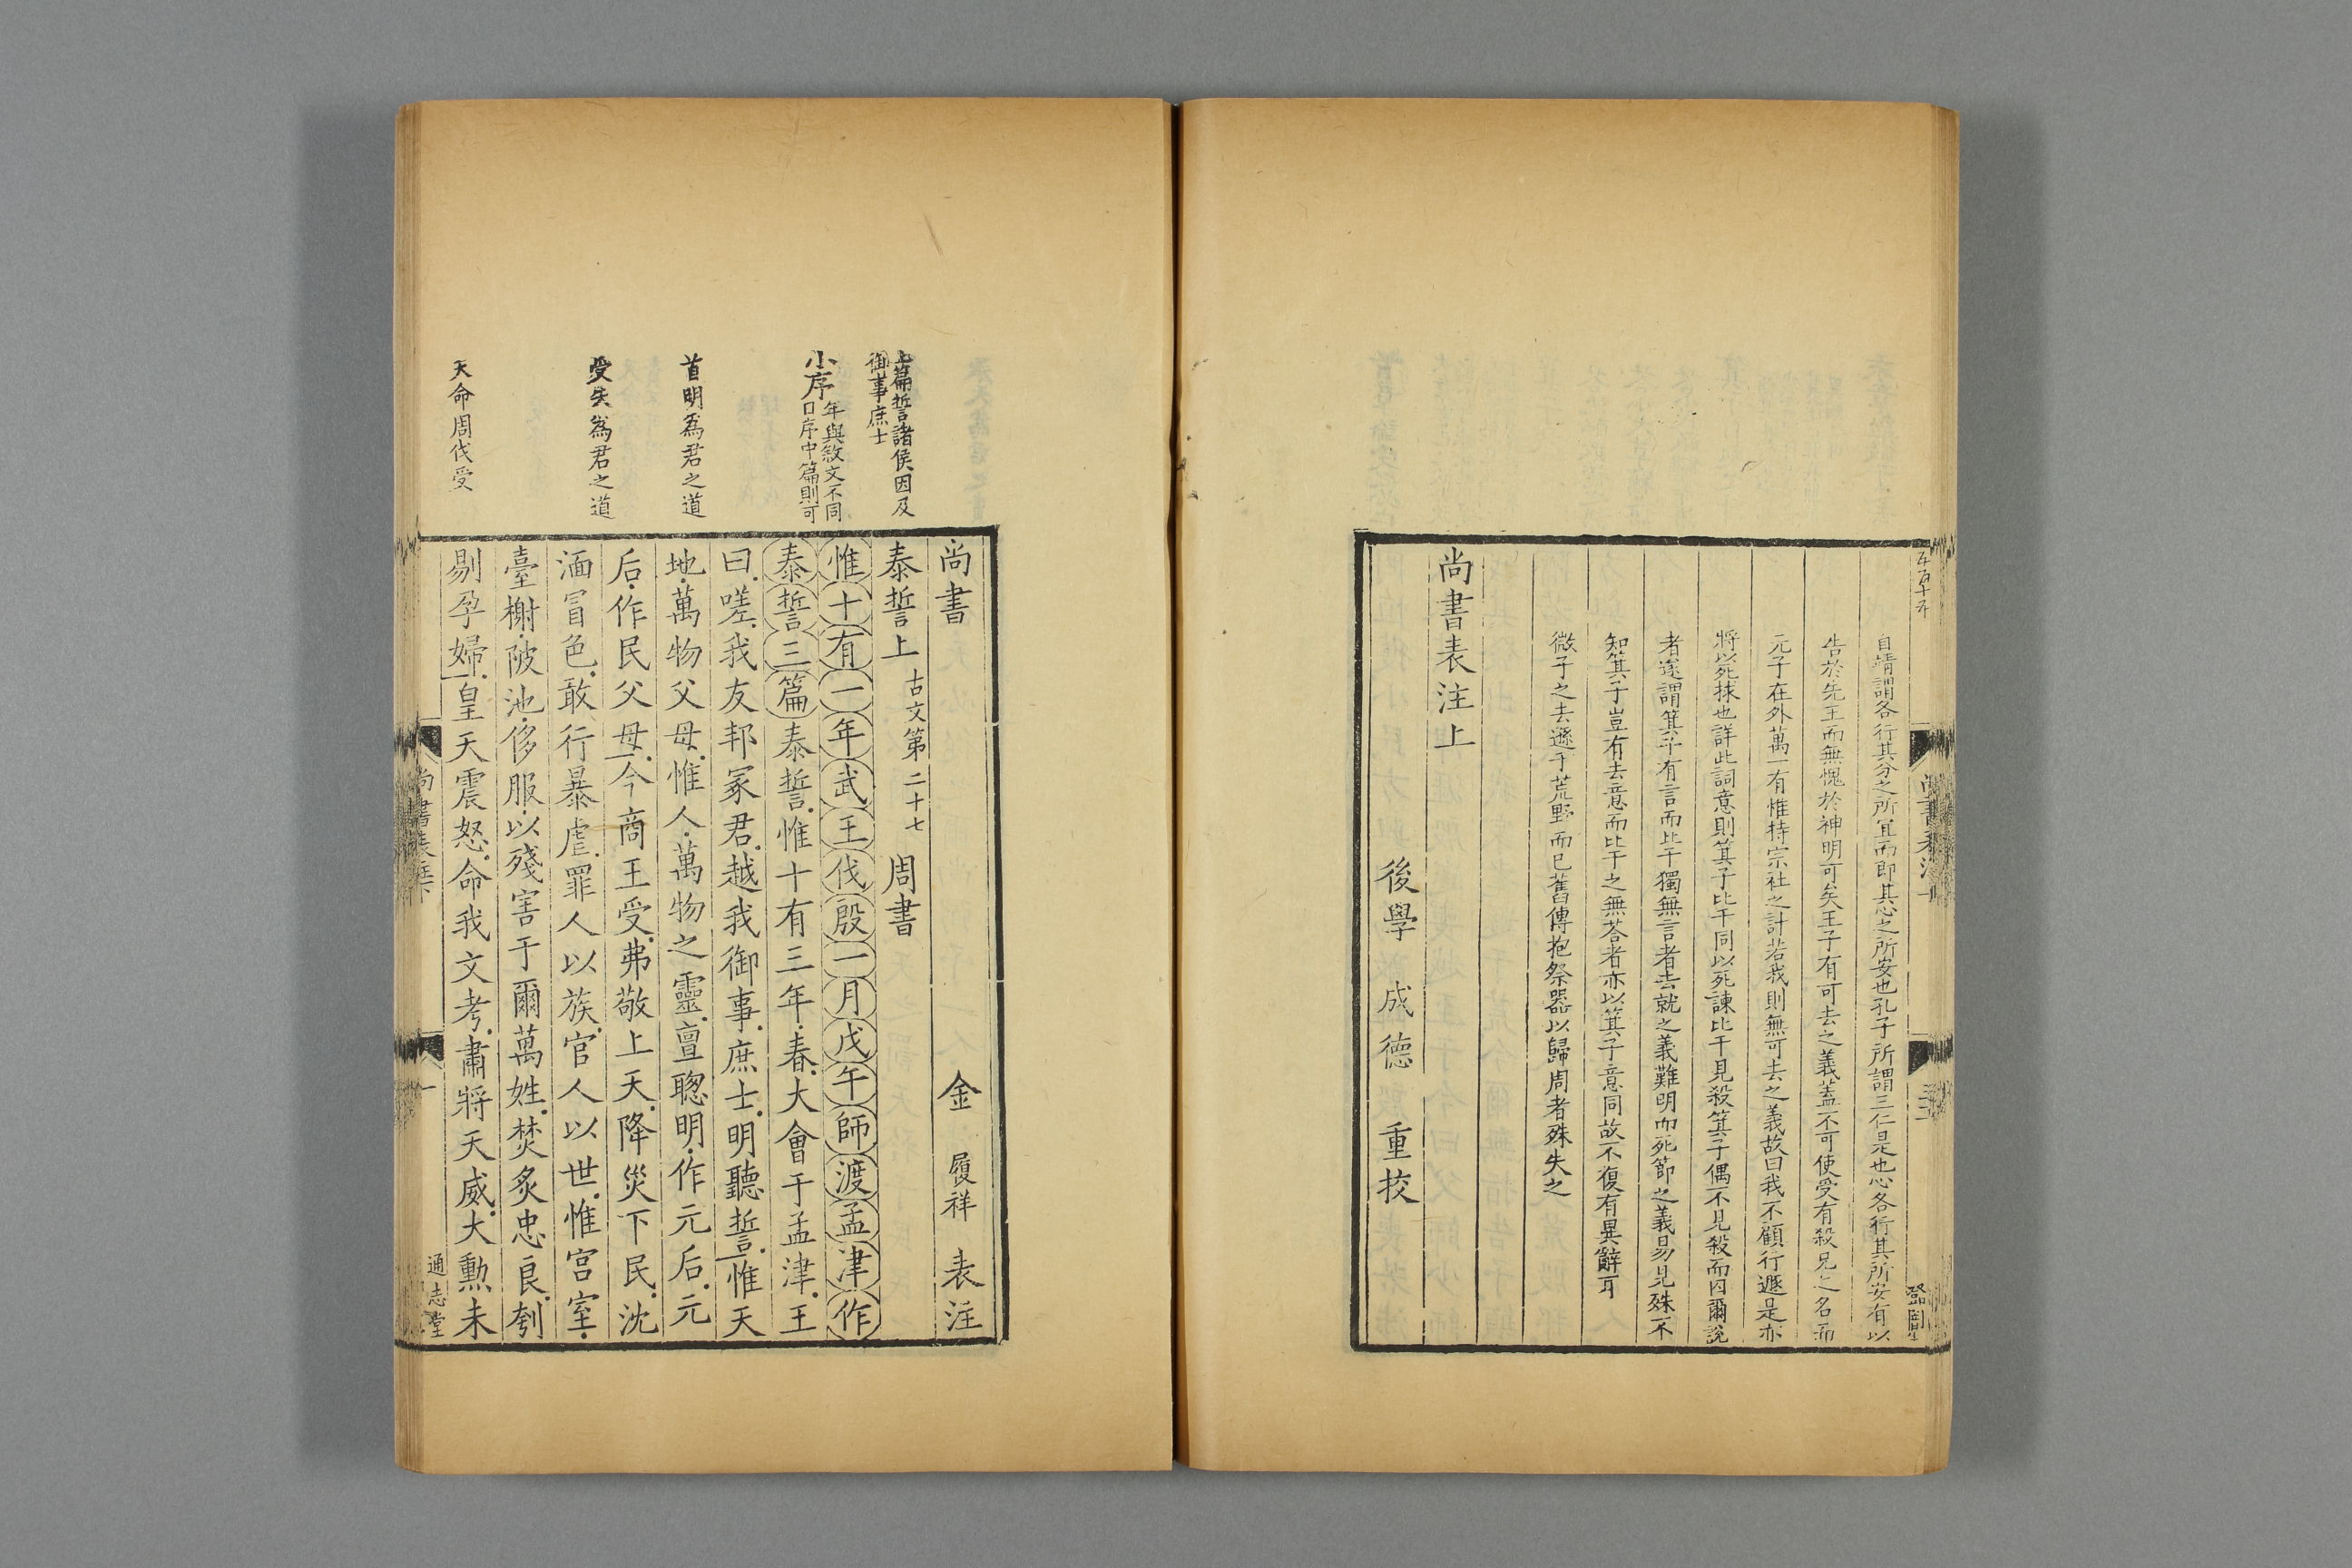 自靖謂各行其分之所宜而即其心之所安也孔子所謂三仁是也心各行其所安有以
告於先王而無愧於神明可矣王子有可去之義蓋不可使受有殺兄之名而
元子在外萬一有惟持宗社之計若我則無可去之義故曰我不顧行遯是亦
將以死捄也詳此詞意則箕子比干同以死諫比干見殺箕子偶不見殺而囚爾說
者遂謂箕子有言而比干獨無言者去就之義難明而死節之義易見殊不
知箕子豈有去意而比干之無荅者亦以箕子意同故不復有異辭耳
微子之去遯于荒野而已舊傳抱祭器以歸周者殊失之
尚書表注上
後學 成德 重挍
尚書
金履祥 表注
上篇誓諸侯因及
御事庶士
泰誓上 古文第二十七 周書
小序 年與敘文不同
曰序中篇則可
惟十有一年武王伐殷一月戊午師渡孟津作
泰誓三篇泰誓惟十有三年春大會于孟津王
曰嗟我友邦冢君越我御事庶士明聽誓惟天
首明為君之道
地萬物父母惟人萬物之靈亶聰明作元后元
后作民父母今商王受弗敬上天降災下民沈
受失為君之道
湎冒色敢行暴虐罪人以族官人以世惟宮室
臺榭陂池侈服以殘害于爾萬姓焚炙忠良刳
天命周伐受
剔孕婦皇天震怒命我文考肅將天威大勳未
通志堂